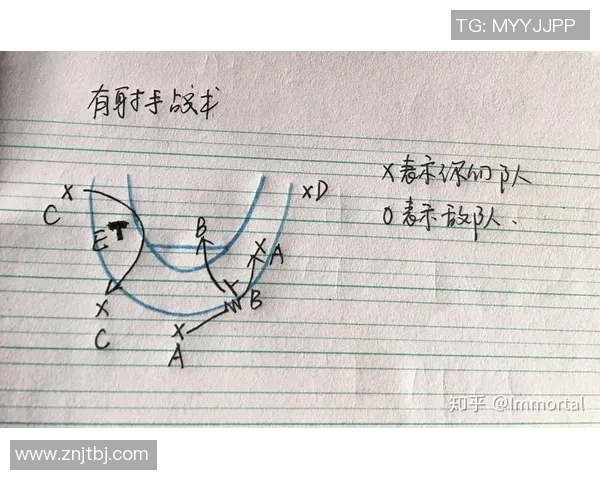 TG: MYYJJPP
有射手战术
X表示你的队
O表示敌队.
X
C
E T
B
X A
X D
X
C
B
X
A
知乎 @Immortal
www.znjtbj.com